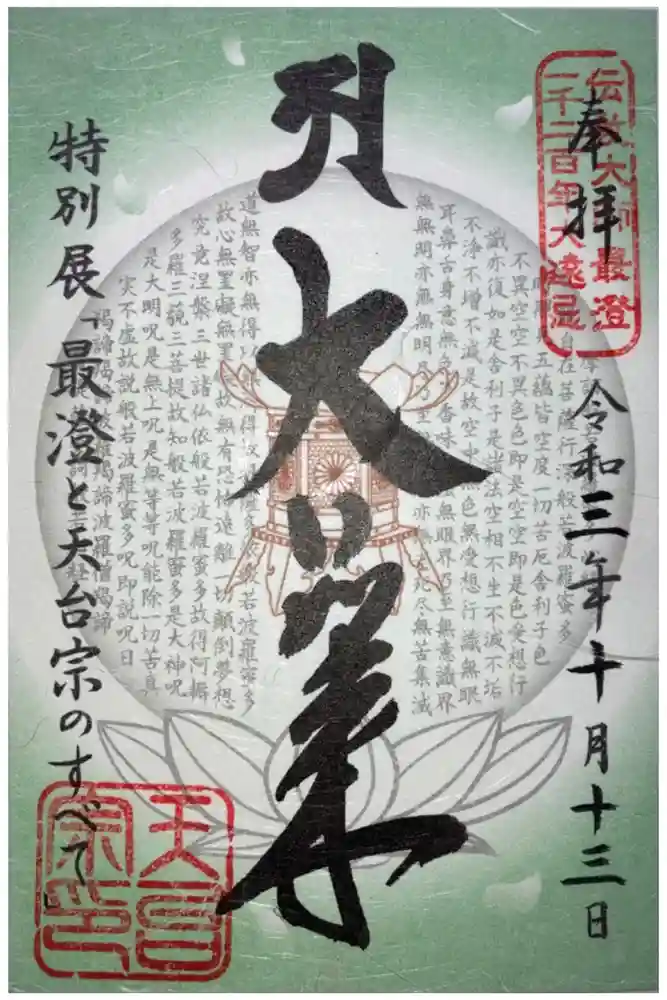 伝教大師最澄
一千二百年大遠忌
奉拝
令和三年十月十三日
自在菩薩行深般若波羅蜜多
五蘊皆空度一切苦厄舎利子色
不異空空不異色色即是空空即是色受想行
識亦復如是舎利子是諸法空相不生不滅不垢
不浄不増不減是故空中無色無受想行識無眼
耳鼻舌身意無色声香味無眼界乃至無意識界
無無明亦無無明尽乃至亦無老死尽無苦集滅
大
道無智亦無得以無所得故般若波羅蜜多
故心無罣礙無罣礙故無有恐怖遠離一切顛倒夢想
究竟涅槃三世諸仏依般若波羅蜜多故得阿耨
多羅三藐三菩提故知般若波羅蜜多是大神呪
是大明呪是無上呪是無等等呪能除一切苦真
実不虚故説般若波羅蜜多呪即説呪曰
羯諦羯諦波羅羯諦波羅僧羯諦
特別展「最澄と天台宗のすべて」
天台宗印